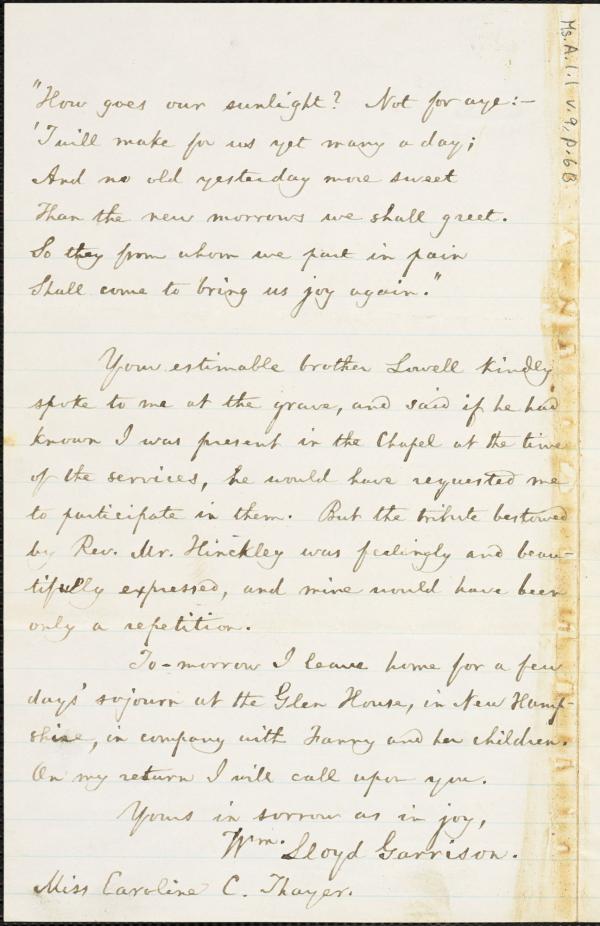 "How goes our sunlight? Not for aye:—
'Twill make for us yet many a day;
And no old yesterday more sweet
Than the new morrows we shall greet.
So they from whom we part in pain
Shall come to bring us joy again."
Your estimable brother Lowell kindly
spoke to me at the grave, and said if he had
known I was present in the Chapel at the time
of the services, he would have requested me
to participate in them. But the tribute bestowed
by Rev. Mr. Hinckley was feelingly and beau-
tifully expressed, and mine would have been
only a repetition.
To-morrow I leave home for a few
days' sojourn at the Glen House, in New Hamp-
shire, in company with Fanny and her children.
On my return I will call upon you.
Yours in sorrow as in joy,
Wm. Lloyd Garrison.
Miss Caroline C. Thayer.
Ms.A.1.1 v.9, p.6B